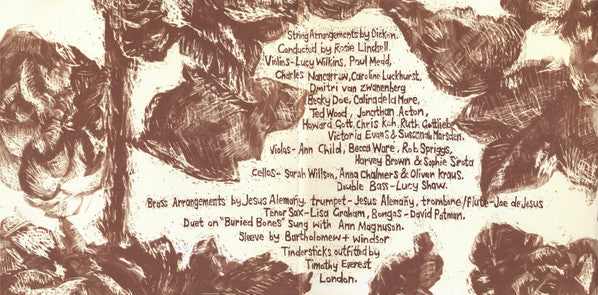 String Arrangements by Dickon.
Conducted by Rosie Lindsell.
Violins- Lucy Wilkins, Paul Mead,
Charles Nancarraw, Caroline Luckhurst,
Dmitri van Zwanenberg
Becky Doe, Calina de la Mare,
Ted Wood, Jonathan Acton,
Howard Gott, Chris Koh, Ruth Gottlieb,
Victoria Evans & Susannah Marsden.
Violas- Ann Child, Becca Ware, Rob Spriggs,
Harvey Brown & Sophie Sirota
Cellos- Sarah Willson, Anna Chalmers & Oliver Kraus.
Double Bass- Lucy Shaw.
Brass Arrangements by Jesus Alemañy. trumpet- Jesus Alemañy, trombone/flute- Joe de Jesus
Tenor Sax- Lisa Graham, Bongos- David Patman.
Duet on "Buried Bones" Sung with Ann Magnuson.
Sleeve by Bartholomew + Windsor
Tindersticks outfitted by
Timothy Everest
London.